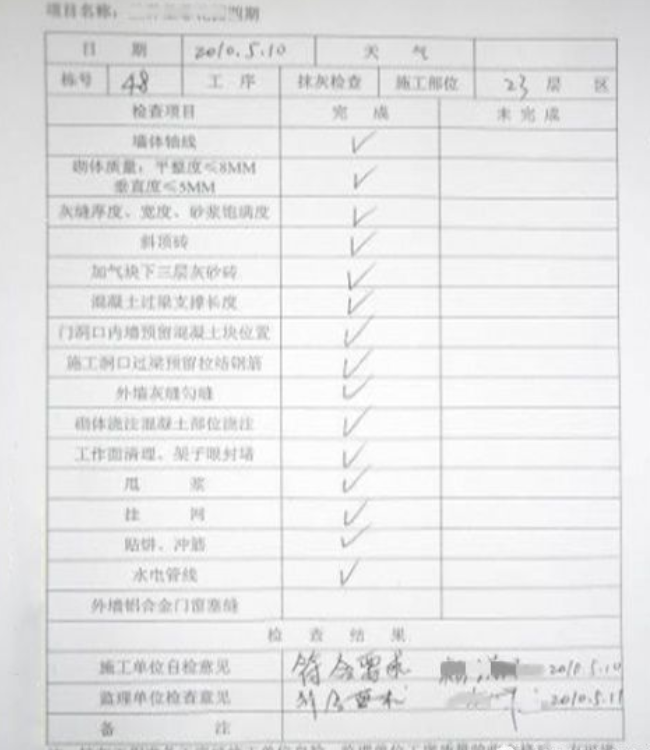 项目名称： 四期
日 期 2010.5.10 天 气
栋号 48 工 序 抹灰检查 施工部位 23 层 区
检查项目 完 成 未 完 成
墙体轴线 ✓
砌体质量：平整度≤8MM
垂直度≤5MM ✓
灰缝厚度、宽度、砂浆饱满度 ✓
斜顶砖 ✓
加气块下三层灰砂砖 ✓
混凝土过梁支撑长度 ✓
门洞口内墙预留混凝土块位置 ✓
施工洞口过梁预留拉结钢筋 ✓
外墙灰缝勾缝 ✓
砌体浇注混凝土部位浇注 ✓
工作面清理、架子眼封堵 ✓
甩 浆 ✓
挂 网 ✓
贴饼、冲筋 ✓
水电管线 ✓
外墙铝合金门窗塞缝
检 查 结 果
施工单位自检意见 符合要求 2010.5.10
监理单位检查意见 符合要求 2010.5.11
备 注